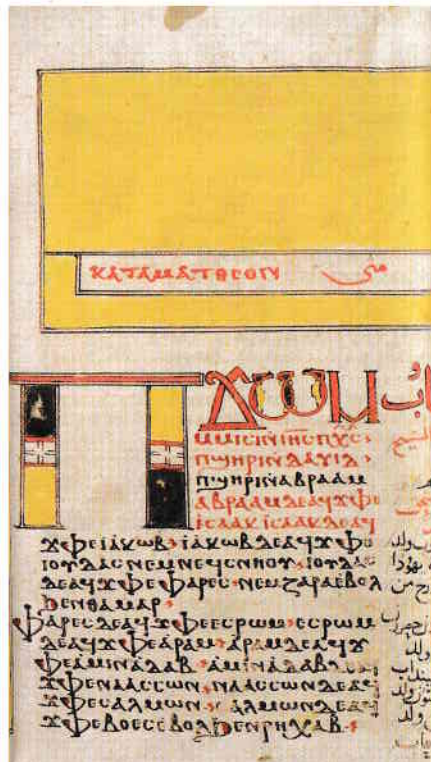 ⲕⲁⲧⲁⲙⲁⲧⲑⲉⲟⲛ متى
ⲡϫⲱⲙ
ⲙⲙⲓⲥⲓ ⲛ̀ⲓⲏⲥ ⲡⲭⲥ
ⲡϣⲏⲣⲓ ⲛ̀ⲇⲁⲩⲓⲇ
ⲡϣⲏⲣⲓ ⲛ̀ⲁⲃⲣⲁⲁⲙ
ⲁⲃⲣⲁⲁⲙ ⲇⲉ ⲁϥϫⲫⲉ
ⲓⲥⲁⲁⲕ ⲓⲥⲁⲁⲕ ⲇⲉ ⲁϥ
ϫⲫⲉ ⲓⲁⲕⲱⲃ ⲓⲁⲕⲱⲃ ⲇⲉ ⲁϥϫⲫⲉ
ⲓⲟⲩⲇⲁⲥ ⲛⲉⲙ ⲛⲉϥⲥⲛⲏⲟⲩ ⲓⲟⲩⲇⲁⲥ
ⲇⲉ ⲁϥϫⲫⲉ ⲫⲁⲣⲉⲥ ⲛⲉⲙ ⲍⲁⲣⲁ ⲉⲃⲟⲗ
ϧⲉⲛ ⲑⲁⲙⲁⲣ
ⲫⲁⲣⲉⲥ ⲇⲉ ⲁϥϫⲫⲉ ⲉⲥⲣⲱⲙ ⲉⲥⲣⲱⲙ
ⲇⲉ ⲁϥϫⲫⲉ ⲁⲣⲁⲙ ⲁⲣⲁⲙ ⲇⲉ ⲁϥϫ
ⲫⲉ ⲁⲙⲓⲛⲁⲇⲁⲃ ⲁⲙⲓⲛⲁⲇⲁⲃ ⲇⲉ ⲁϥ
ϫⲫⲉ ⲛⲁⲁⲥⲥⲱⲛ ⲛⲁⲁⲥⲥⲱⲛ ⲇⲉ ⲁϥ
ϫⲫⲉ ⲥⲁⲗⲙⲱⲛ ⲥⲁⲗⲙⲱⲛ ⲇⲉ ⲁϥ
ϫⲫⲉ ⲃⲟⲉⲥ ⲉⲃⲟⲗ ϧⲉⲛ ⲣⲏⲭⲁⲃ
المسيح
ولد
يهودا
ولد
ولد